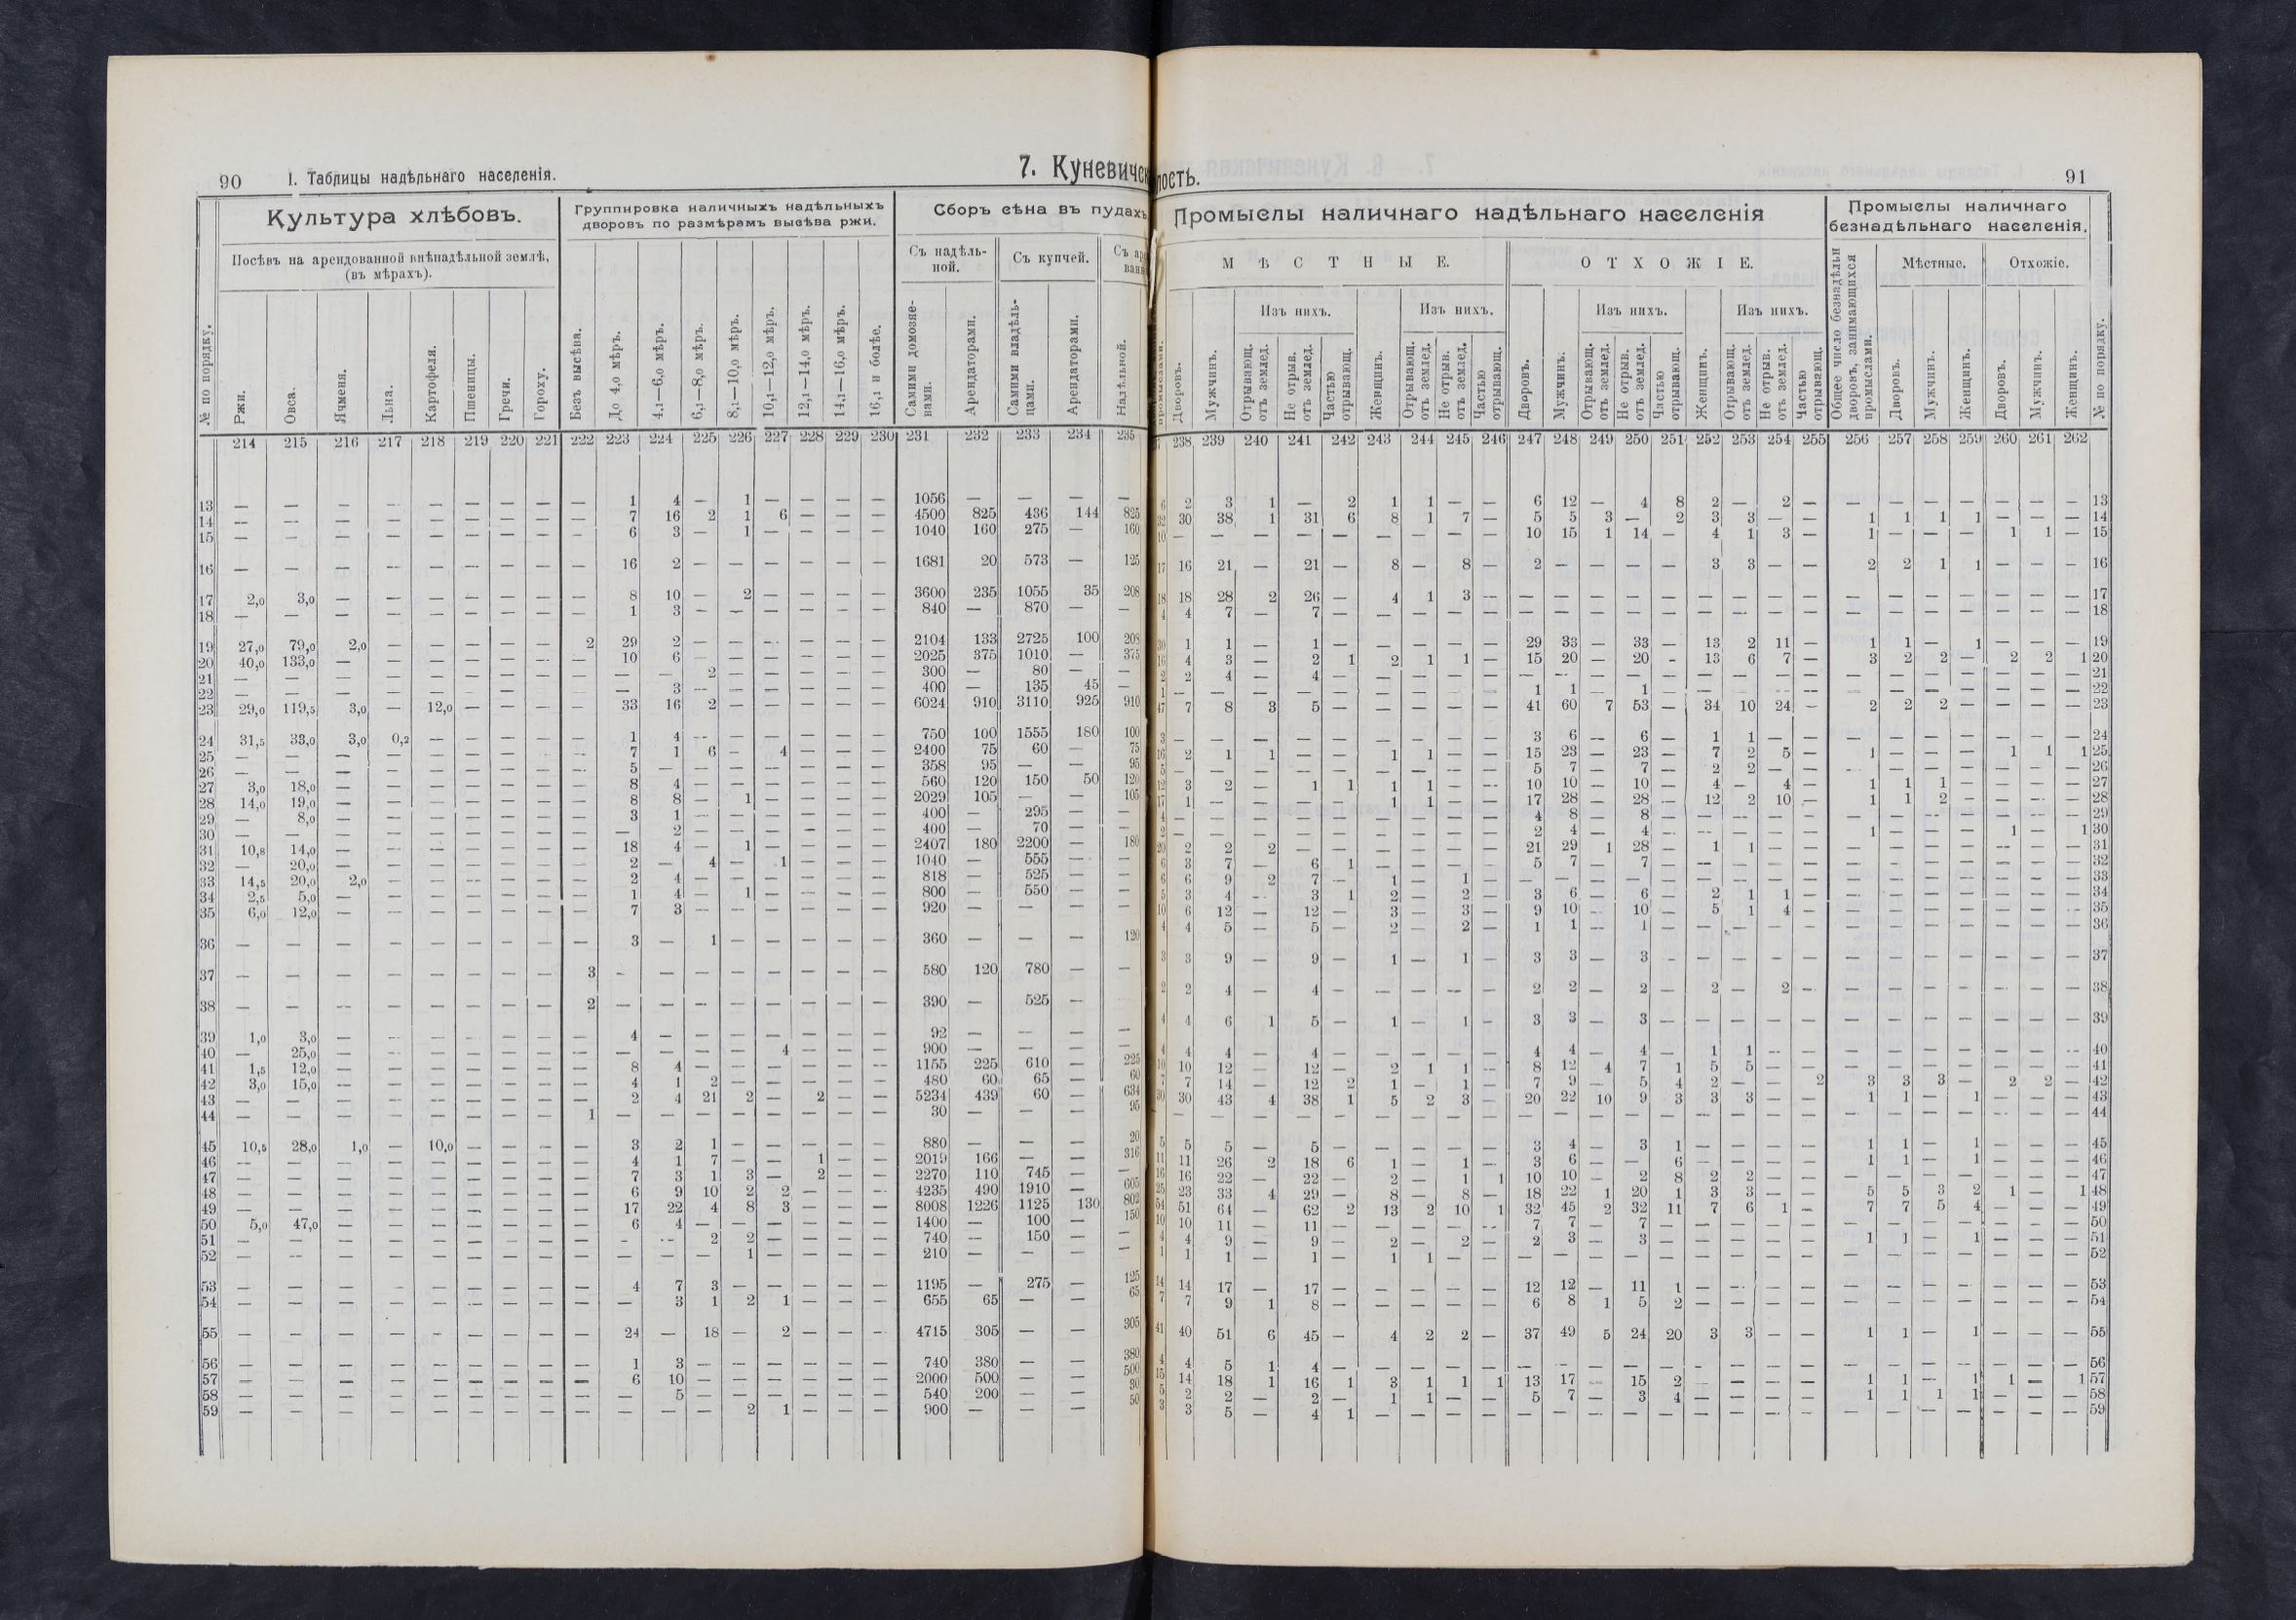 90 I. Таблицы надѣльнаго населенія. 7. Куневичск
Культура хлѣбовъ. Группировка наличныхъ надѣльныхъ дворовъ по размѣрамъ высѣва ржи. Сборъ сѣна въ пудахъ
Посѣвъ на арендованной внѣнадѣльной землѣ, (въ мѣрахъ). Съ надѣльной. Съ купчей.
№ по порядку. Ржи. Овса. Ячменя. Льна. Картофеля. Пшеницы. Гречи. Гороху. Безъ высѣва. До 4,0 мѣръ. 4,1—6,0 мѣръ. 6,1—8,0 мѣръ. 8,1—10,0 мѣръ. 10,1—12,0 мѣръ. 12,1—14,0 мѣръ. 14,1—16,0 мѣръ. 16,1 и болѣе. Самими домохозяевами. Арендаторами. Самими владѣльцами. Арендаторами. Надѣльной.
214 215 216 217 218 219 220 221 222 223 224 225 226 227 228 229 230 231 232 233 234 235
13 — — — — — — — — — 1 4 — 1 — — — — 1056 — — — —
14 — — — — — — — — — 7 16 2 1 6 — — — 4500 825 436 144 825
15 — — — — — — — — — 6 3 — 1 — — — — 1040 160 275 — 160
16 — — — — — — — — — 16 2 — — — — — — 1681 20 573 — 125
17 2,0 3,0 — — — — — — — 8 10 — 2 — — — — 3600 235 1055 35 208
18 — — — — — — — — — 1 3 — — — — — — 840 — 870 — —
19 27,0 79,0 2,0 — — — — — 2 29 2 — — — — — — 2104 133 2725 100 208
20 40,0 133,0 — — — — — — — 10 6 — — — — — — 2025 375 1010 — 375
21 — — — — — — — — — — — 2 — — — — — 300 — 80 — —
22 — — — — — — — — — — 3 — — — — — — 400 — 135 45 —
23 29,0 119,5 3,0 — 12,0 — — — — 33 16 2 — — — — — 6024 910 3110 925 910
24 31,5 33,0 3,0 0,2 — — — — — 1 4 — — — — — — 750 100 1555 180 100
25 — — — — — — — — — 7 1 6 — 4 — — — 2400 75 60 — 75
26 — — — — — — — — — 5 — — — — — — — 358 95 — — 95
27 3,0 18,0 — — — — — — — 8 4 — — — — — — 560 120 150 50 120
28 14,0 19,0 — — — — — — — 8 8 — 1 — — — — 2029 105 — — 105
29 — 8,0 — — — — — — — 3 1 — — — — — — 400 — 295 — —
30 — — — — — — — — — — 2 — — — — — — 400 — 70 — —
31 10,8 14,0 — — — — — — — 18 4 — 1 — — — — 2407 180 2200 — 180
32 — 20,0 — — — — — — — 2 — 4 — 1 — — — 1040 — 555 — —
33 14,5 20,0 2,0 — — — — — — 2 4 — — — — — — 818 — 525 — —
34 2,5 5,0 — — — — — — — 1 4 — 1 — — — — 800 — 550 — —
35 6,0 12,0 — — — — — — — 7 3 — — — — — — 920 — — — —
36 — — — — — — — — — 3 — 1 — — — — — 360 — — — 120
37 — — — — — — — — 3 — — — — — — — — 580 120 780 — —
38 — — — — — — — — 2 — — — — — — — — 390 — 525 —
39 1,0 3,0 — — — — — — — 4 — — — — — — — 92 — — — —
40 — 25,0 — — — — — — — — — — — 4 — — — 900 — — — —
41 1,5 12,0 — — — — — — — 8 4 — — — — — — 1155 225 610 — 225
42 3,0 15,0 — — — — — — — 4 1 2 — — — — — 480 60 65 — 60
43 — — — — — — — — — 2 4 21 2 — 2 — — 5234 439 60 — 634
44 — — — — — — — — 1 — — — — — — — — 30 — — — 95
45 10,5 28,0 1,0 — 10,0 — — — — 3 2 1 — — — — — 880 — — — 20
46 — — — — — — — — — 4 1 7 — — 1 — — 2019 166 — — 316
47 — — — — — — — — — 7 3 1 3 — 2 — — 2270 110 745 — —
48 — — — — — — — — — 6 9 10 2 2 — — — 4235 490 1910 — 605
49 — — — — — — — — — 17 22 4 8 3 — — — 8008 1226 1125 130 802
50 5,0 47,0 — — — — — — — 6 4 — — — — — — 1400 — 100 — 150
51 — — — — — — — — — — — 2 2 — — — — 740 — 150 — —
52 — — — — — — — — — — — — 1 — — — — 210 — — — —
53 — — — — — — — — — 4 7 3 — — — — — 1195 — 275 — 125
54 — — — — — — — — — — 3 1 2 1 — — — 655 65 — — 65
55 — — — — — — — — — 24 — 18 — 2 — — — 4715 305 — — 305
56 — — — — — — — — — 1 3 — — — — — — 740 380 — — 380
57 — — — — — — — — — 6 10 — — — — — — 2000 500 — — 500
58 — — — — — — — — — — 5 — — — — — — 540 200 — — 30
59 — — — — — — — — — — — — 2 1 — — — 900 — — — 50
лость. 91
Промыслы наличнаго надѣльнаго населенія Промыслы наличнаго безнадѣльнаго населенія.
МѢСТНЫЕ. ОТХОЖІЕ. Мѣстные. Отхожіе.
Изъ нихъ. Изъ нихъ. Изъ нихъ. Изъ нихъ.
Дворовъ. Мужчинъ. Отрывающ. отъ землед. Не отрыв. отъ землед. Частью отрывающ. Женщинъ. Отрывающ. отъ землед. Не отрыв. отъ землед. Частью отрывающ. Дворовъ. Мужчинъ. Отрывающ. отъ землед. Не отрыв. отъ землед. Частью отрывающ. Женщинъ. Отрывающ. отъ землед. Не отрыв. отъ землед. Частью отрывающ. Общее число безнадѣльн дворовъ, занимающихся промыслами. Дворовъ. Мужчинъ. Женщинъ. Дворовъ. Мужчинъ. Женщинъ. № по порядку.
238 239 240 241 242 243 244 245 246 247 248 249 250 251 252 253 254 255 256 257 258 259 260 261 262
6 2 3 1 — 2 1 1 — — 6 12 — 4 8 2 — 2 — — — — — — — — 13
32 30 38 1 31 6 8 1 7 — 5 5 3 — 2 3 3 — — 1 1 1 1 — — — 14
10 — — — — — — — — — 10 15 1 14 — 4 1 3 — 1 — — — 1 1 — 15
17 16 21 — 21 — 8 — 8 — 2 — — — — 3 3 — — 2 2 1 1 — — — 16
18 18 28 2 26 — 4 1 3 — — — — — — — — — — — — — — — — — 17
4 4 7 — 7 — — — — — — — — — — — — — — — — — — — — — 18
30 1 1 — 1 — — — — — 29 33 — 33 — 13 2 11 — 1 1 — 1 — — — 19
16 4 3 — 2 1 2 1 1 — 15 20 — 20 — 13 6 7 — 3 2 2 — 2 2 1 20
2 2 4 — 4 — — — — — — — — — — — — — — — — — — — — — 21
1 — — — — — — — — — 1 1 — 1 — — — — — — — — — — — — 22
47 7 8 3 5 — — — — — 41 60 7 53 — 34 10 24 — 2 2 2 — — — — 23
3 — — — — — — — — — 3 6 — 6 — 1 1 — — — — — — — — — 24
16 2 1 1 — — 1 1 — — 15 23 — 23 — 7 2 5 — 1 — — — 1 1 1 25
5 — — — — — — — — — 5 7 — 7 — 2 2 — — — — — — — — — 26
12 3 2 — 1 1 1 1 — — 10 10 — 10 — 4 — 4 — 1 1 1 — — — — 27
17 1 — — — — 1 1 — — 17 28 — 28 — 12 2 10 — 1 1 2 — — — — 28
4 — — — — — — — — — 4 8 — 8 — — — — — — — — — — — — 29
2 — — — — — — — — — 2 4 — 4 — — — — — 1 — — — 1 — 1 30
20 2 2 2 — — — — — — 21 29 1 28 — 1 1 — — — — — — — — — 31
6 3 7 — 6 1 — — — — 5 7 — 7 — — — — — — — — — — — — 32
6 6 9 2 7 — 1 — 1 — — — — — — — — — — — — — — — — — 33
5 3 4 — 3 1 2 — 2 — 3 6 — 6 — 2 1 1 — — — — — — — — 34
10 6 12 — 12 — 3 — 3 — 9 10 — 10 — 5 1 4 — — — — — — — — 35
4 4 5 — 5 — 2 — 2 — 1 1 — 1 — — — — — — — — — — — — 36
3 3 9 — 9 — 1 — 1 — 3 3 — 3 — — — — — — — — — — — — 37
2 2 4 — 4 — — — — — 2 2 — 2 — 2 — 2 — — — — — — — — 38
4 4 6 1 5 — 1 — 1 — 3 3 — 3 — — — — — — — — — — — — 39
4 4 4 — 4 — — — — — 4 4 — 4 — 1 1 — — — — — — — — — 40
10 10 12 — 12 — 2 1 1 — 8 12 4 7 1 5 5 — — — — — — — — — 41
7 7 14 — 12 2 1 — 1 — 7 9 — 5 4 2 — — 2 3 3 3 — 2 2 — 42
30 30 43 4 38 1 5 2 3 — 20 22 10 9 3 3 3 — — 1 1 — 1 — — — 43
— — — — — — — — — — — — — — — — — — — — — — — — — 44
5 5 5 — 5 — — — — — 3 4 — 3 1 — — — — 1 1 — 1 — — — 45
11 11 26 2 18 6 1 — 1 — 3 6 — — 6 — — — — 1 1 — 1 — — — 46
16 16 22 — 22 — 2 — 1 1 10 10 — 2 8 2 2 — — — — — — — — — 47
25 23 33 4 29 — 8 — 8 — 18 22 1 20 1 3 3 — — 5 5 3 2 1 — 1 48
54 51 64 — 62 2 13 2 10 1 32 45 2 32 11 7 6 1 — 7 7 5 4 — — — 49
10 10 11 — 11 — — — — — 7 7 — 7 — — — — — — — — — — — — 50
4 4 9 — 9 — 2 — 2 — 2 3 — 3 — — — — — 1 1 — 1 — — — 51
1 1 1 — 1 — 1 1 — — — — — — — — — — — — — — — — — — 52
14 14 17 — 17 — — — — — 12 12 — 11 1 — — — — — — — — — — — 53
7 7 9 1 8 — — — — — 6 8 1 5 2 — — — — — — — — — — — 54
41 40 51 6 45 — 4 2 2 — 37 49 5 24 20 3 3 — — 1 1 — 1 — — — 55
4 4 5 1 4 — — — — — — — — — — — — — — — — — — — — — 56
15 14 18 1 16 1 3 1 1 1 13 17 — 15 2 — — — — 1 1 — 1 1 — 1 57
5 2 2 — 2 — 1 1 — — 5 7 — 3 4 — — — — 1 1 1 1 — — — 58
3 3 5 — 4 1 — — — — — — — — — — — — — — — — — — — — 59